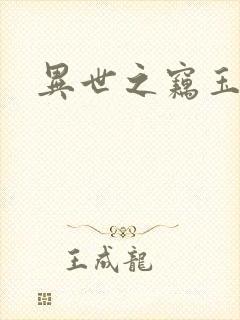 異世之竊玉
王成龍